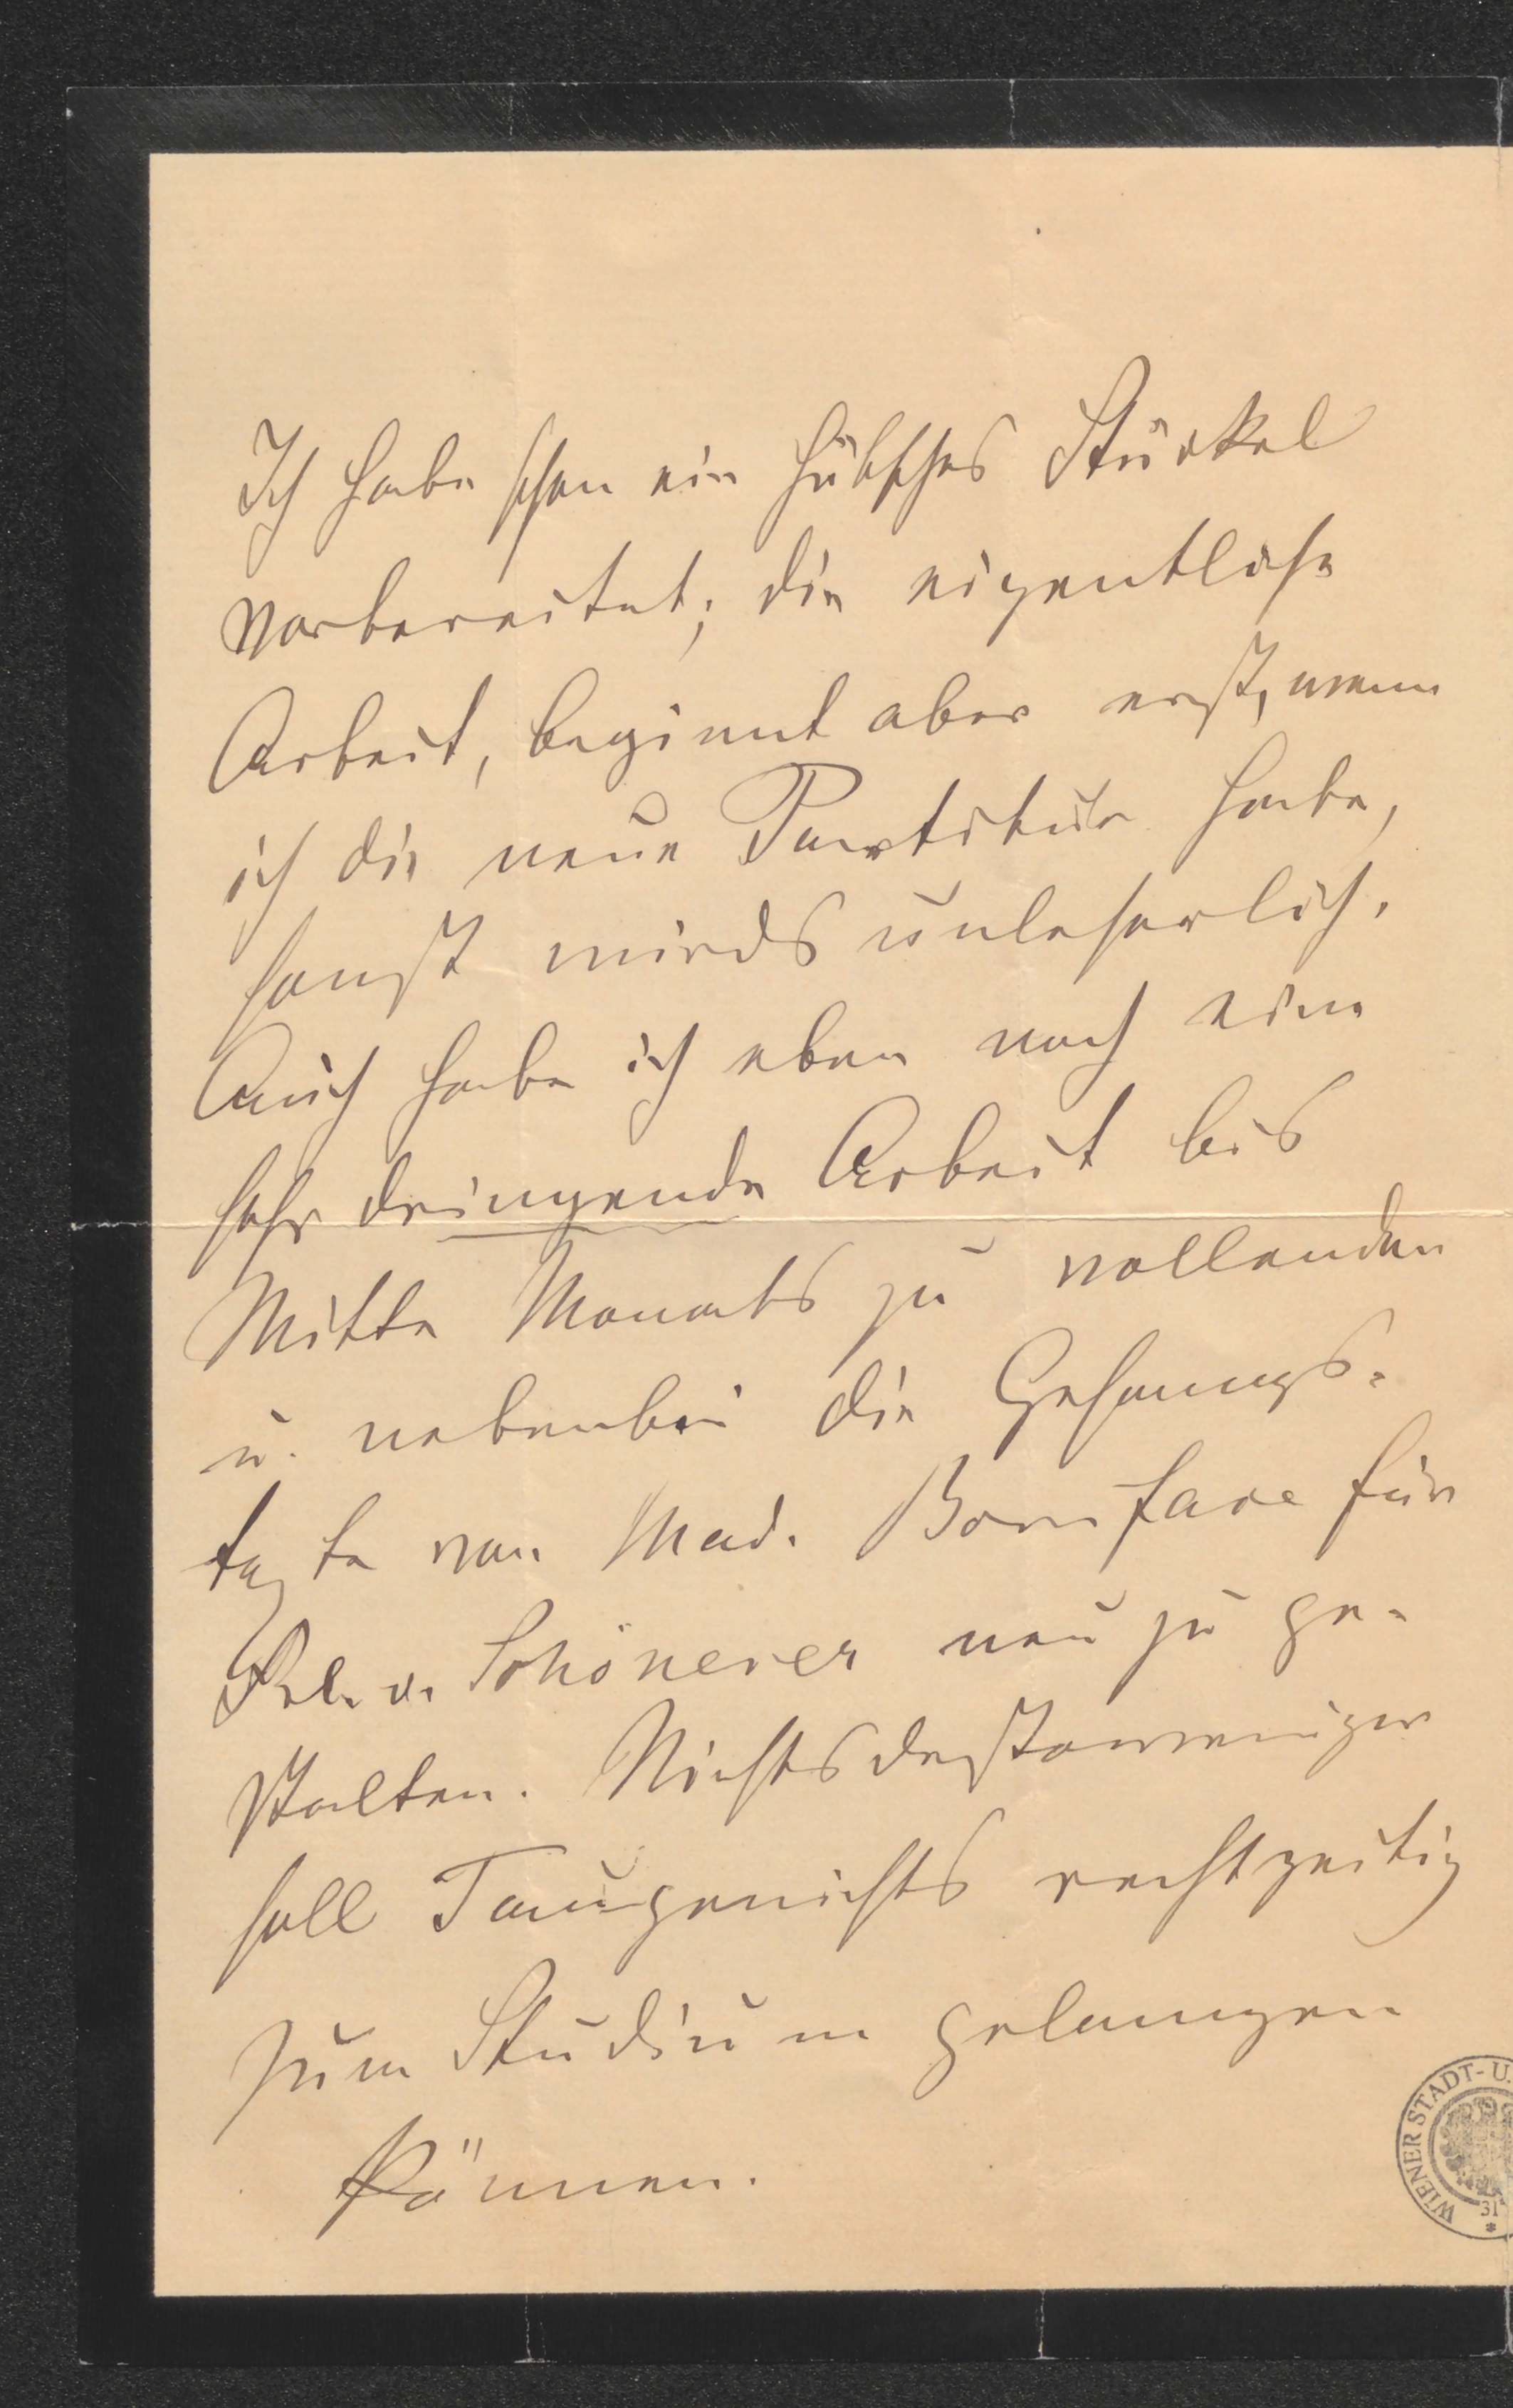 Ich habe schon ein hübsches Stückel
vorbereitet; die eigentliche
Arbeit, beginnt aber erst, wenn
ich die neue Partitur habe,
sonst wirds unleserlich.
Auch habe ich eben noch eine
sehr dringende Arbeit bis
Mitte Monats zu vollenden
u. nebenbei die Gesangs-
texte von Mad. Boniface für
Frl. v. Schönerer neu zu ge-
stalten. Nichtsdestoweniger
soll Taugenichts rechtzeitig
zum Studium gelangen
können.
WIENER STADT- U.
31